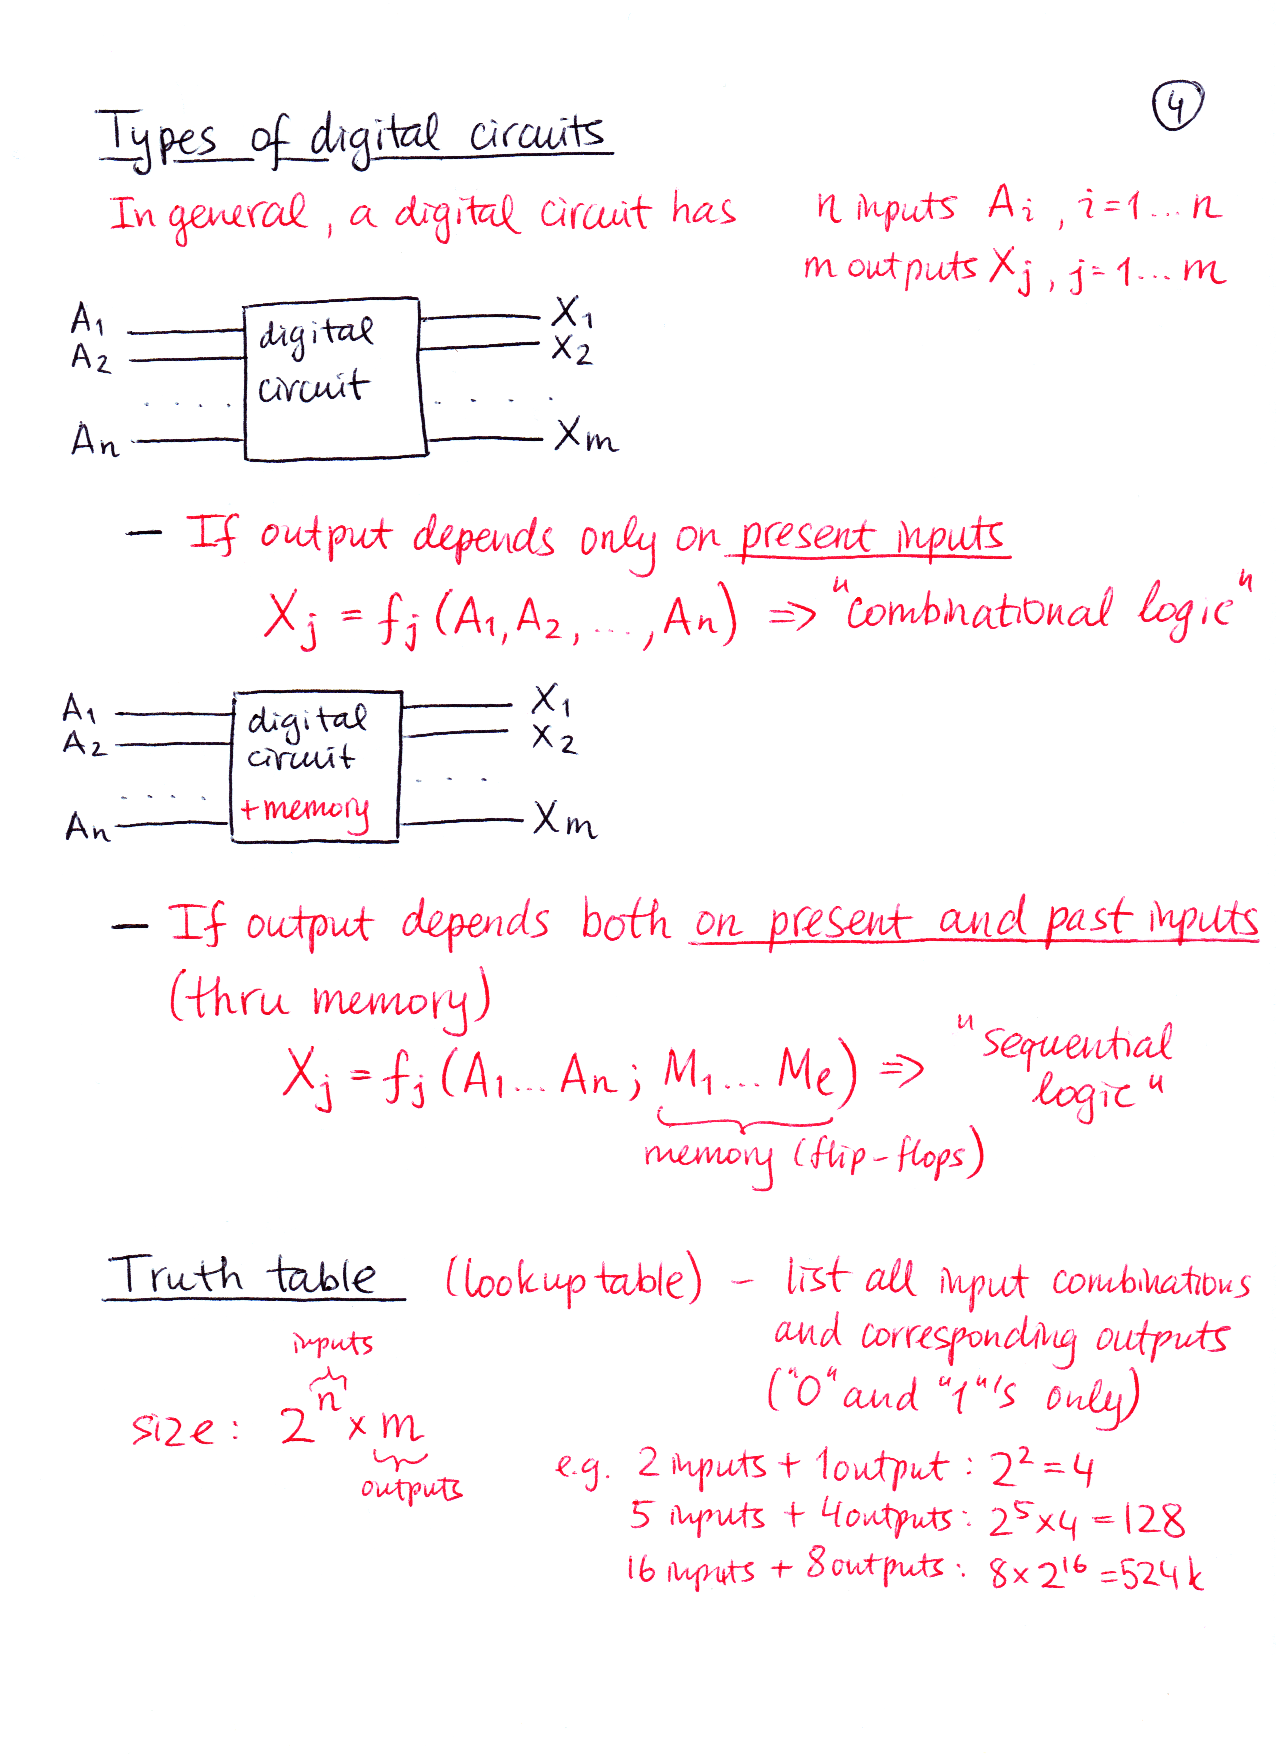 4
Types of digital circuits
In general, a digital circuit has n inputs Ai, i=1...n
m outputs Xj, j=1...m
A1 digital X1
A2 circuit X2
. . . . . . . .
An Xm
– If output depends only on present inputs
Xj = fj (A1, A2, ..., An) => "combinational logic"
A1 digital X1
A2 circuit X2
. . . . . . . .
An +memory Xm
– If output depends both on present and past inputs
(thru memory)
Xj = fj (A1... An; M1... Me) => "sequential
logic"
memory (flip-flops)
Truth table (lookup table) – list all input combinations
and corresponding outputs
("0" and "1"'s only)
inputs
size: 2^n x m
outputs
e.g. 2 inputs + 1 output: 2^2 = 4
5 inputs + 4 outputs: 2^5 x 4 = 128
16 inputs + 8 outputs: 8 x 2^16 = 524k